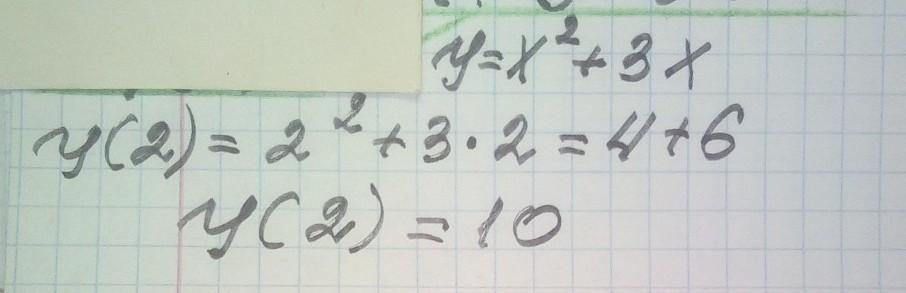 y=x²+3x
y(2)=2²+3·2=4+6
y(2)=10